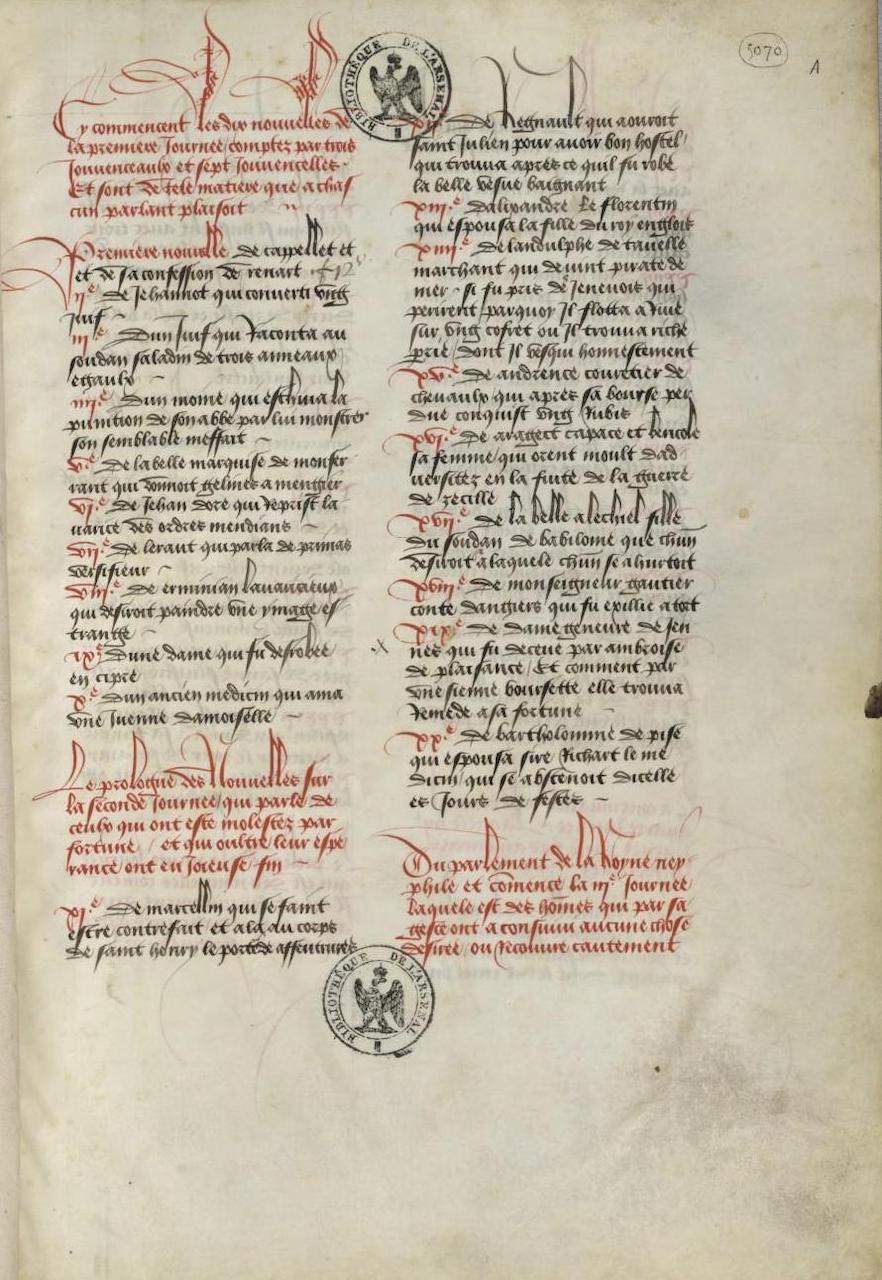 5070
A
BIBLIOTHÈQUE DE L'ARSENAL
Cy commencent les dix nouvelles de
la premiere Journee comptez par trois
Jouvenceaulx et sept Jouvencelles.
Et sont de tele matiere que a chas
cun parlant plaisoit
Premiere nouvelle de cappellet et
et de sa confession de renart
ii.e de Jehannot qui converti ung
Juif
iii.e Dun Juif qui Raconta au
soudan saladin de trois anneaux
egaulx
iiii.e Dun moine qui eschiva la
punition de son abbe par lui monstrer
son semblable meffait
v.e De la belle marquise de monfer
rant qui donnoit gelines a mengier
vi.e De Jehan dore qui Reprist la
varice des ordres mendians
vii.e De lerant qui parla de primas
versifieur
viii.e De erminian lavaricieux
qui desiroit paindre une ymage es
trange
ix.e Dune dame qui fu desrobee
en cipre
x.e Dun ancien medicin qui ama
une Juenne damoiselle
Le prologue des Nouvelles sur
la seconde Journee qui parle de
ceulx qui ont este molestez par
fortune / et qui oultre leur espe
rance ont eu Joieuse fin
xi.e De marcellin qui se faint
estre contrefait et ala au corps
de saint henry le porte de
xii.e De Regnault qui aouroit
saint Julien pour avoir bon hostel /
qui trouva apres ce quil fu robe
la belle vesve baignant
xiii.e Dalixandre le florentin
qui espousa la fille du roy englois
xiiii.e De landulphe de ravelle
marchant qui devint pirate de
mer / si fu pris de Jenevois qui
perirent parquoy Il flotta a Rive
sur ung cofret ou Il trouva riche
prie / dont Il vesqui honnestement
xv.e De andrence couretier de
chevaulx qui apres sa bourse per
due conquist ung Rubis
xvi.e De aragect capace et
sa femme qui orent moult dad
versitez en la fuite de la guerre
de zecille
xvii.e De la belle alechiel fille
du soudan de babilone que chun
desiroit a laquele chun se ahurtoit
xviii.e De monseigneur gautier
conte dangiers qui fu exillie a tort
xix.e De dame geneure de Jen
nes qui fu deceue par ambroise
de plaisance / Et comment par
une sienne boursette elle trouva
Remede a sa fortune
xx.e De bartholomine de pise
qui espousa sire Richart le me
dicin / qui se abstenoit dicelle
es Jours de festes
Du parlement de la Royne ney
phile et comence la iii.e Journee
laquele est des homes qui par sa
gesce ont a consuivi aucune chose
desiree / ou Recouvre cautement
BIBLIOTHÈQUE DE L'ARSENAL